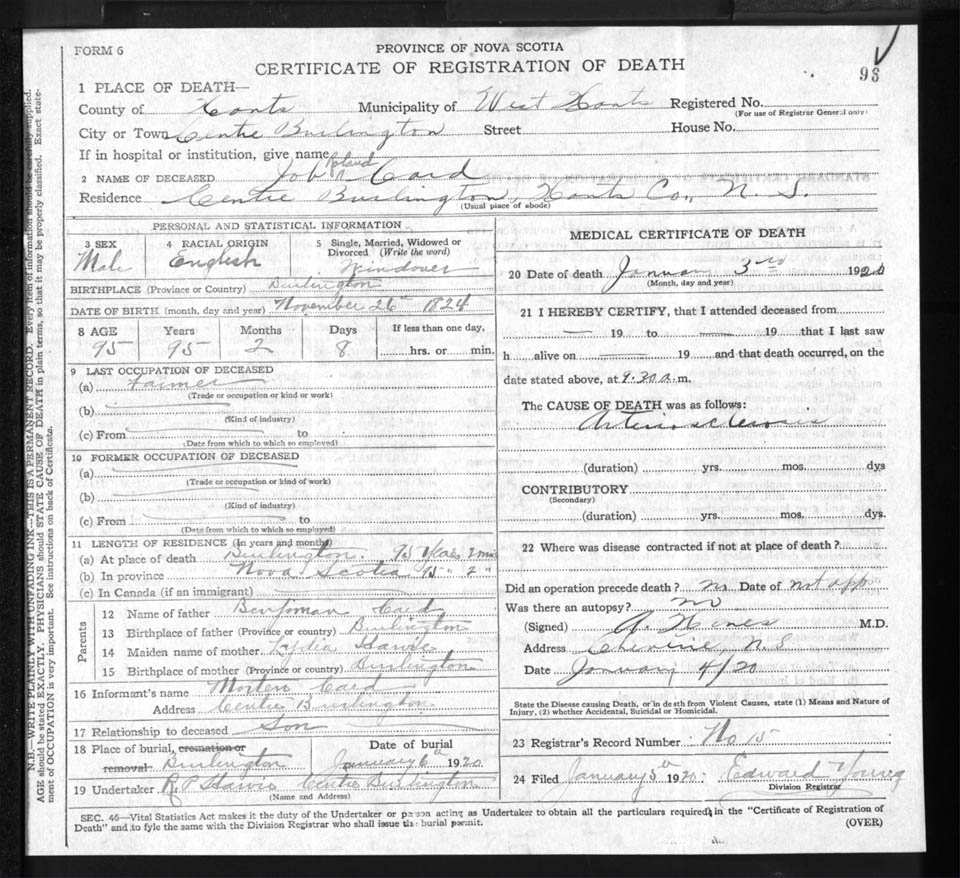 FORM 6
PROVINCE OF NOVA SCOTIA
98
CERTIFICATE OF REGISTRATION OF DEATH
1 PLACE OF DEATH—
County of Hants Municipality of West Hants Registered No.
(For use of Registrar General only)
City or Town Centre Burlington Street House No.
If in hospital or institution, give name
Roland
2 NAME OF DECEASED Job Card
Residence Centre Burlington, Hants Co., N. S.
(Usual place of abode)
PERSONAL AND STATISTICAL INFORMATION
3 SEX Male
4 RACIAL ORIGIN English
5 Single, Married, Widowed or Divorced (Write the word)
BIRTHPLACE (Province or Country) Burlington
DATE OF BIRTH (month, day and year) November 26th 1824
8 AGE Years Months Days If less than one day,
95 95 2 8 hrs. or min.
9 LAST OCCUPATION OF DECEASED
(a) Farmer
(Trade or occupation or kind or work)
(b)
(Kind of industry)
(c) From to
(Date from which to which so employed)
10 FORMER OCCUPATION OF DECEASED
(a)
(Trade or occupation or kind of work)
(b)
(Kind of industry)
(c) From to
(Date from which to which so employed)
11 LENGTH OF RESIDENCE (In years and months)
(a) At place of death Burlington. 95 years 2 mos
(b) In province Nova Scotia " 2 "
(c) In Canada (if an immigrant)
Parents
12 Name of father Benjiman Card
13 Birthplace of father (Province or country) Burlington
14 Maiden name of mother Lydia Harvie
15 Birthplace of mother (Province or country) Burlington
16 Informant's name Card
Address Centre Burlington
17 Relationship to deceased Son
18 Place of burial, cremation or removal Burlington
Date of burial January 6th 1920
19 Undertaker R. P Harvie Centre Burlington
(Name and Address)
MEDICAL CERTIFICATE OF DEATH
20 Date of death January 3rd 1920
(Month, day and year)
21 I HEREBY CERTIFY, that I attended deceased from
— 19 to — 19 that I last saw
h alive on — 19 and that death occurred, on the
date stated above, at 9.30 a.m.
The CAUSE OF DEATH was as follows:
Arteriosclerosis
(duration) yrs. mos. dys
CONTRIBUTORY
(Secondary)
(duration) yrs. mos. dys.
22 Where was disease contracted if not at place of death?
Did an operation precede death? no Date of not app
Was there an autopsy? no
(Signed) A. Hines M.D.
Address N.S
Date January 4/20
State the Disease causing Death, or in death from Violent Causes, state (1) Means and Nature of
Injury, (2) whether Accidental, Suicidal or Homicidal.
23 Registrar's Record Number No 15
24 Filed January 5th 1920. Edward Young
Division Registrar
SEC. 46—Vital Statistics Act makes it the duty of the Undertaker or person acting as Undertaker to obtain all the particulars required in the "Certificate of Registration of
Death" and to fyle the same with the Division Registrar who shall issue the burial permit.
(OVER)
N.B.—WRITE PLAINLY WITH UNFADING INK—THIS IS A PERMANENT RECORD. Every item of information should be carefully supplied.
AGE should be stated EXACTLY. PHYSICIANS should STATE CAUSE OF DEATH in plain terms, so that it may be properly classified. Exact state-
ment of OCCUPATION is very important. See instructions on back of Certificate.